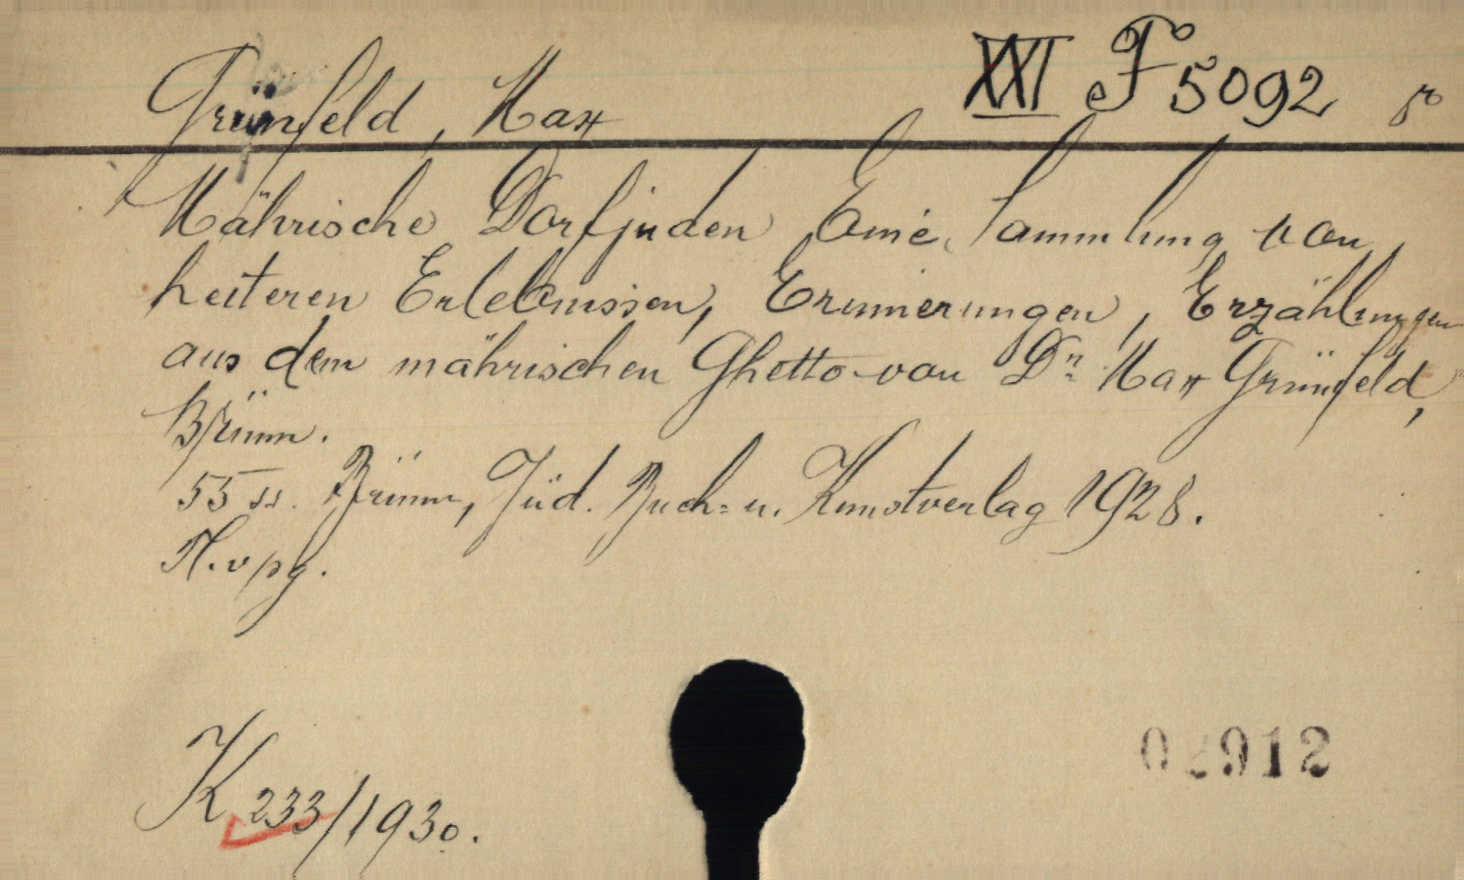 Grünfeld, Max XXI F 5092 8°
Mährische Dorfjuden Eine Sammlung von
heiteren Erlebnissen, Erinnerungen, Erzählungen
aus dem mährischen Ghetto von Dr. Max Grünfeld,
Brünn.
55 ss. Brünn, Jüd. Buch- u. Kunstverlag 1928.
K 233/1930.
912